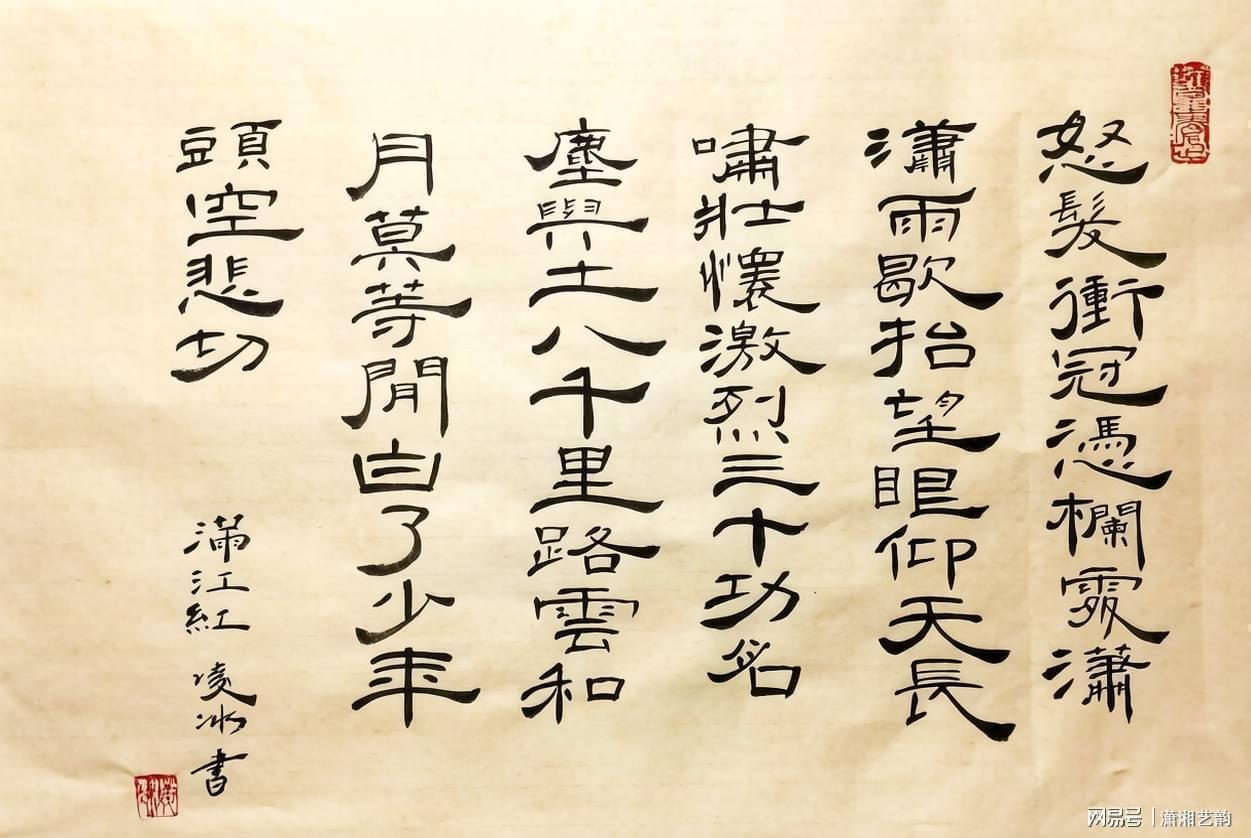 怒髮衝冠憑欄處瀟
瀟雨歇抬望眼仰天長
嘯壯懷激烈三十功名
塵與土八千里路雲和
月莫等閒白了少年
頭空悲切
滿江紅 凌冰书
网易号 | 潇湘艺韵